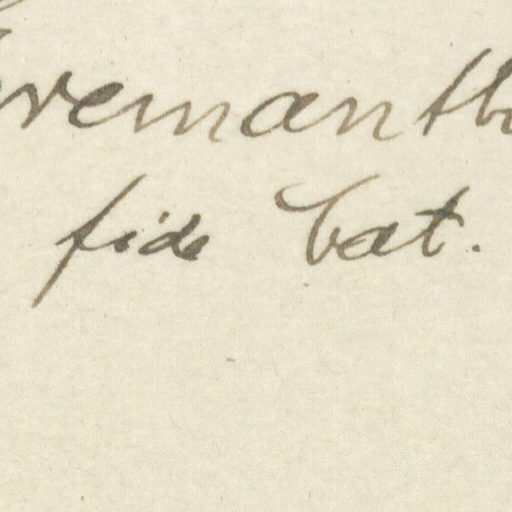 remanth
fide Cat.